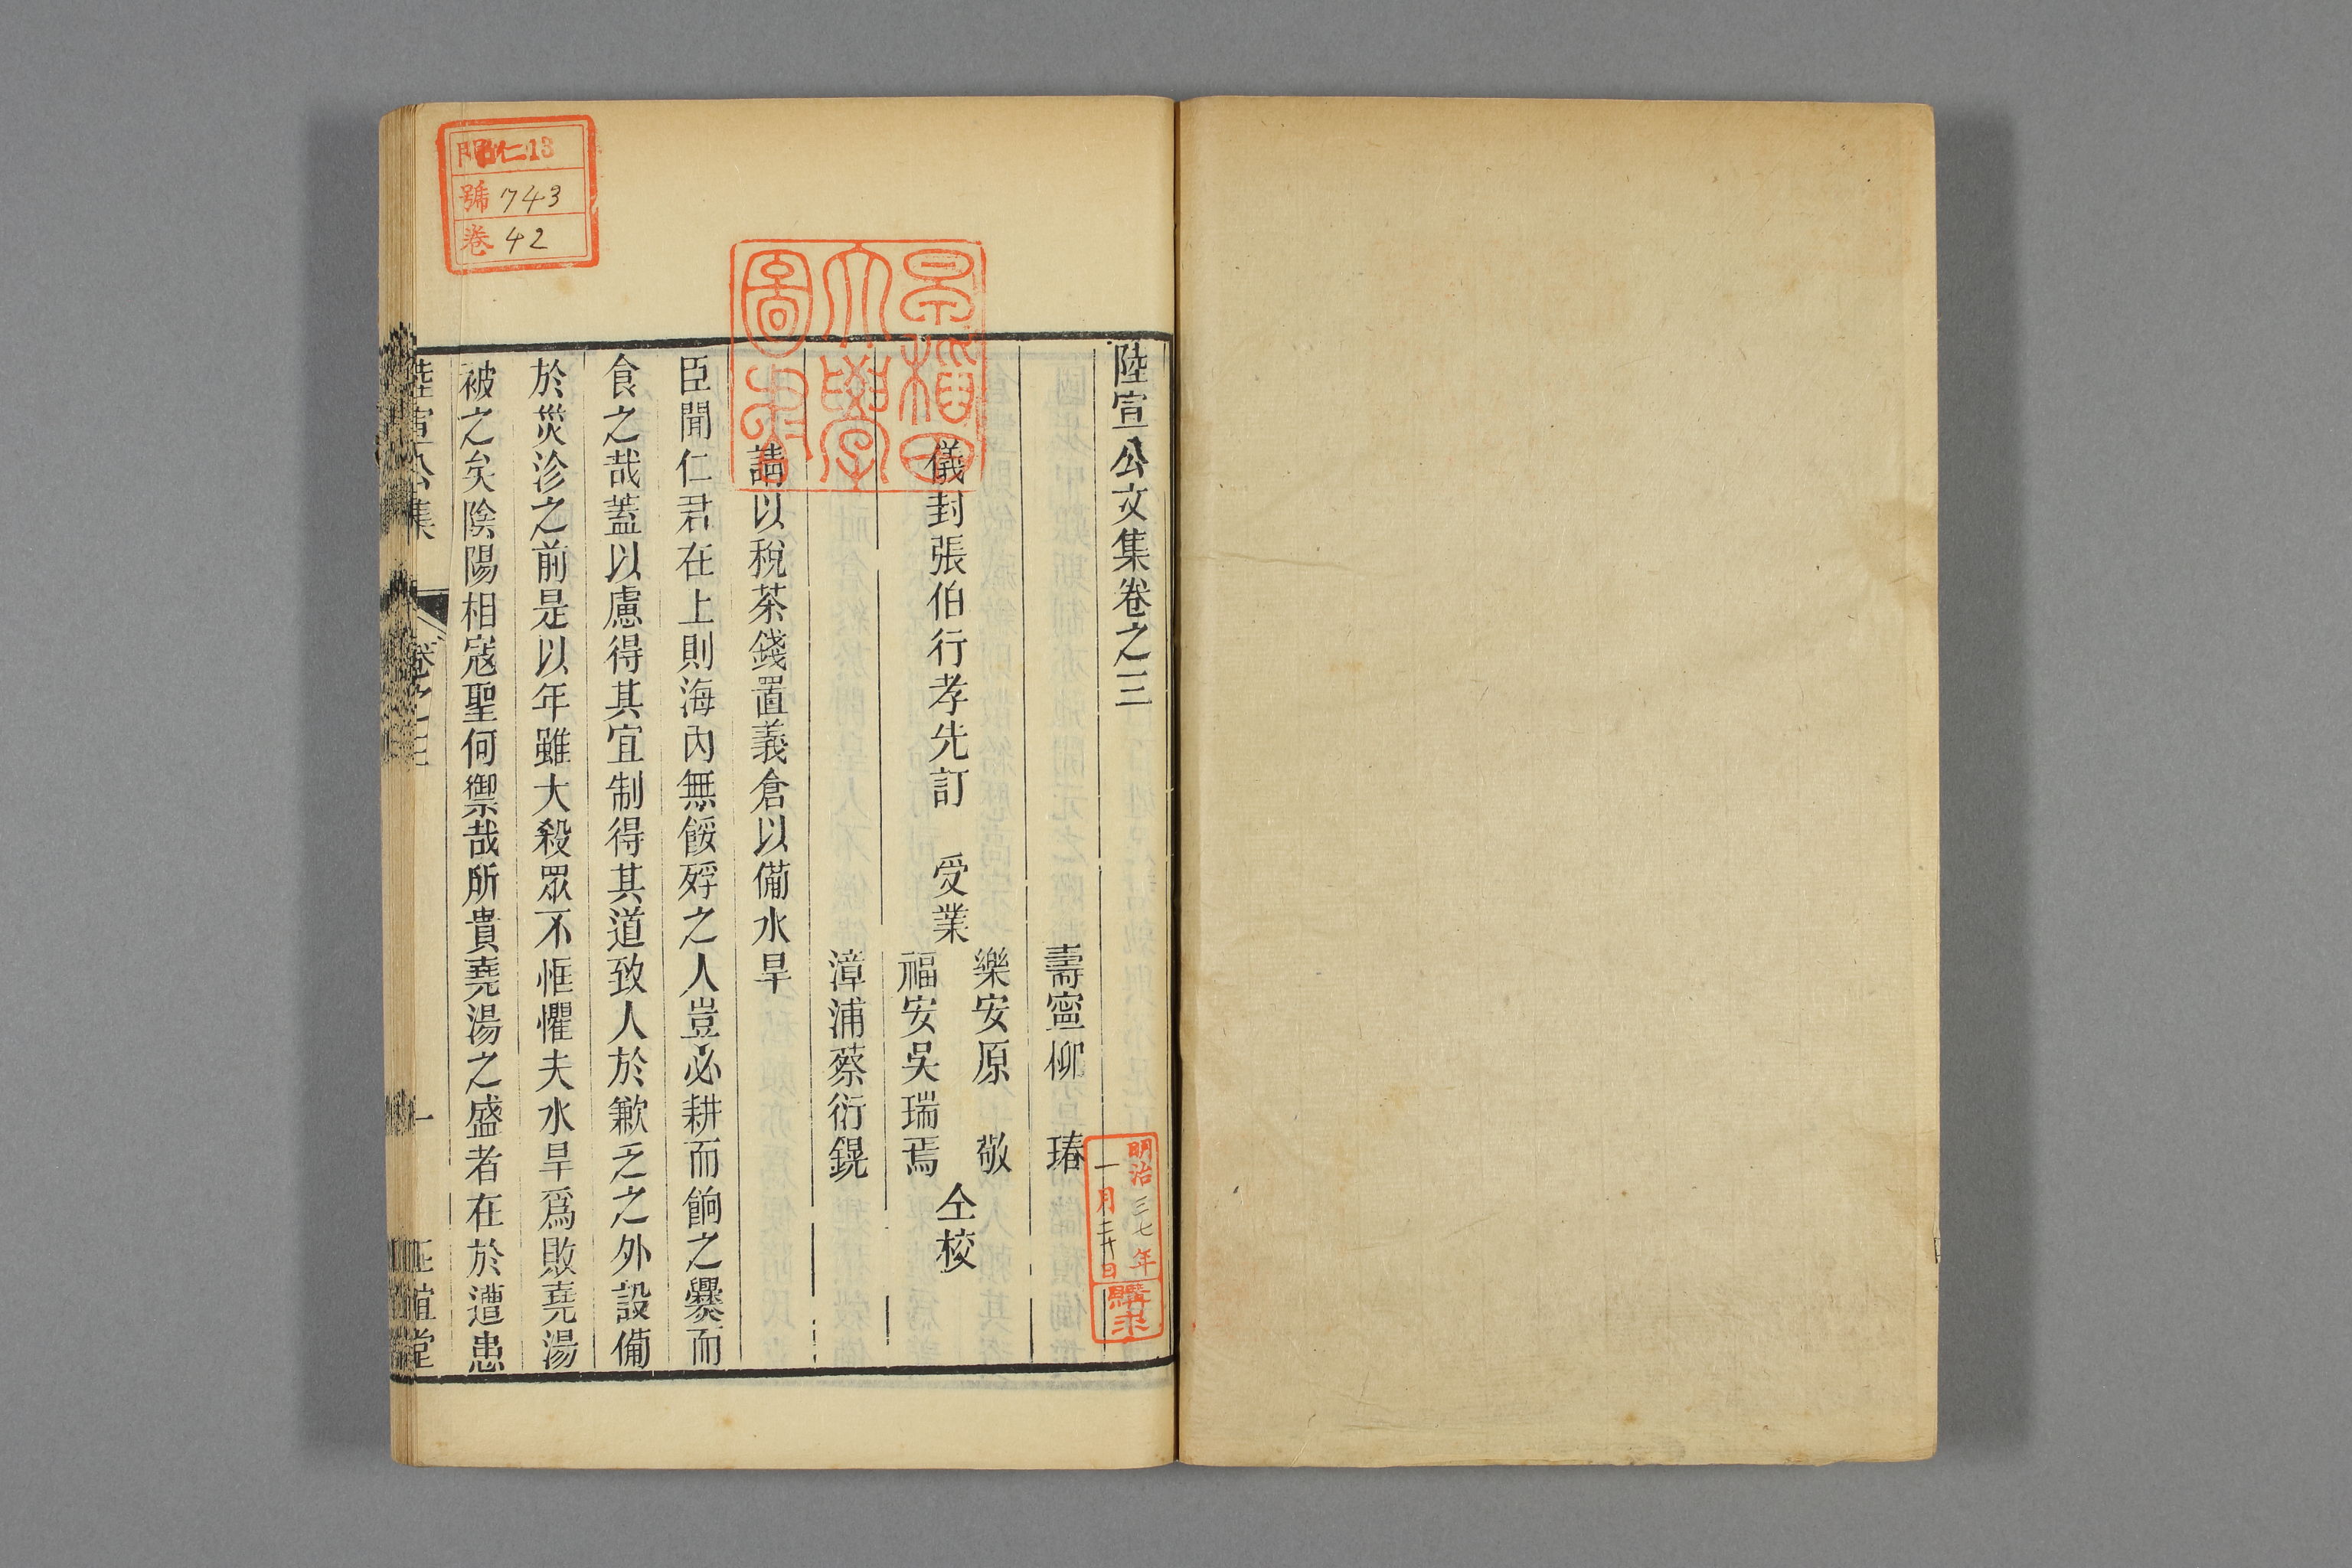 陸宣公文集卷之三
壽寧柳 瑃
儀封張伯行孝先訂 受業
樂安原 敬
福安吳瑞焉
仝校
漳浦蔡衍鎤
請以稅茶錢置義倉以備水旱
臣聞仁君在上則海內無餒殍之人豈必耕而餉之爨而
食之哉蓋以慮得其宜制得其道致人於歉乏之外設備
於災沴之前是以年雖大殺眾不恇懼夫水旱爲敗堯湯
被之矣陰陽相寇聖何禦哉所貴堯湯之盛者在於遭患
陸宣公集 卷之三 一 正誼堂
早稻田大學圖書
門 仁13
號 743
卷 42
明治三七年
一月二十日
購求